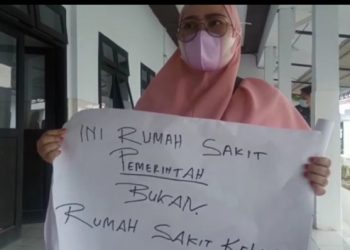 INI RUMAH SAKIT
PEMERINTAH
BUKAN
RUMAH SAKIT